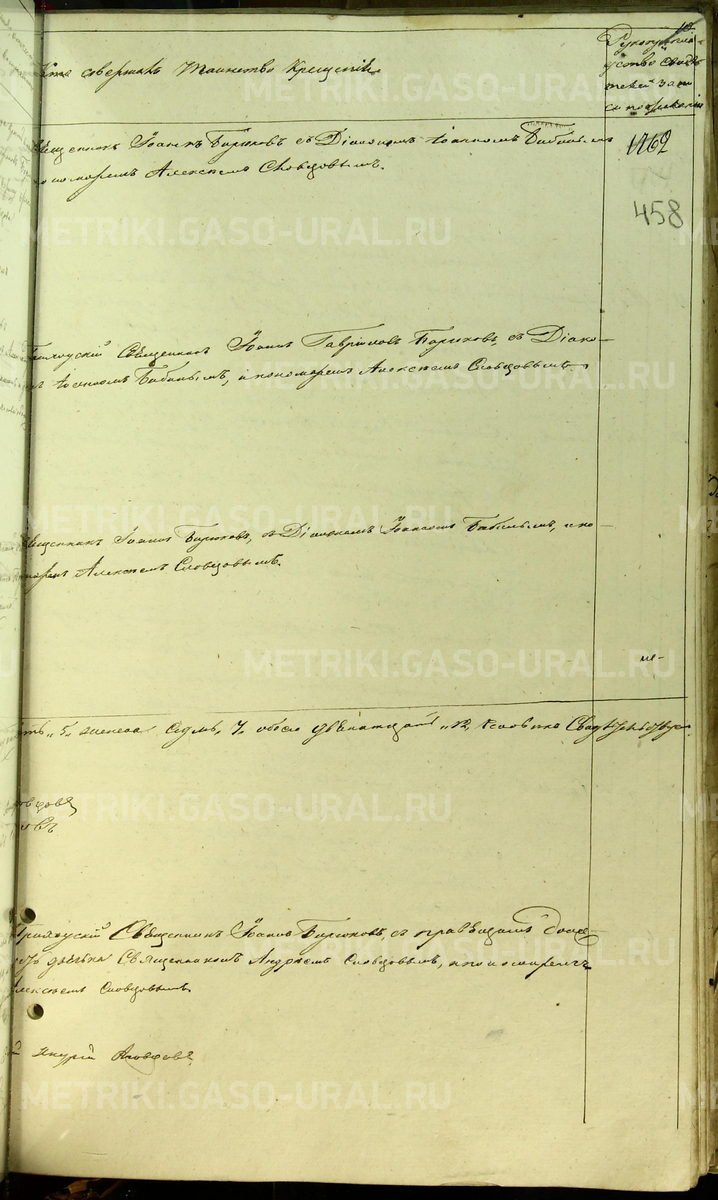 Кто совершалъ Таинство Крещенія
Рукоприкла
дство свидѣ
телей запи
си по желанію
1462
458
Священникъ Іоаннъ Бирюковъ съ Діакономъ Іоанномъ Бабинымъ
пономаремъ Алексѣемъ Словцовымъ.
Священникъ Іоаннъ Гавриловъ Бирюковъ, съ Діако-
Іоанномъ Бабинымъ, и пономаремъ Алексѣемъ Словцовымъ
Священникъ Іоаннъ Бирюковъ, съ Діакономъ Іоанномъ Бабинымъ, и по
Алексѣемъ Словцовымъ.
5, женска седмь, 7, обоего двѣнадцать, 12, человѣкъ Свидѣтельству-
Священникъ Іоаннъ Бирюковъ, съ
дьячка Священникомъ Андреемъ Словцовымъ, и пономаремъ
Алексѣемъ Словцовымъ.
METRIKI.GASO-URAL.RU